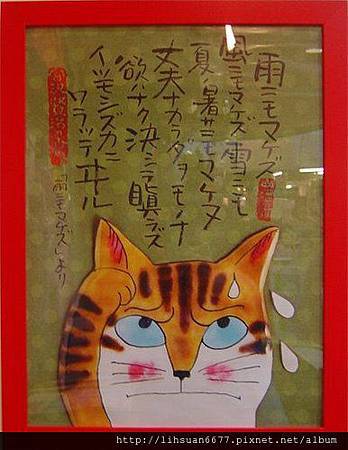 雨ニモマゲズ
風ニモマゲズ 雪ニモ
夏ノ暑サニモマケヌ
丈夫ナカラダヲモチ
欲ハナク 決シテ瞋ラズ
イツモシズカニ
ワラッテヰル
宮沢賢治
「雨ニモマゲズ」より
http://lihsuan6677.pixnet.net/album